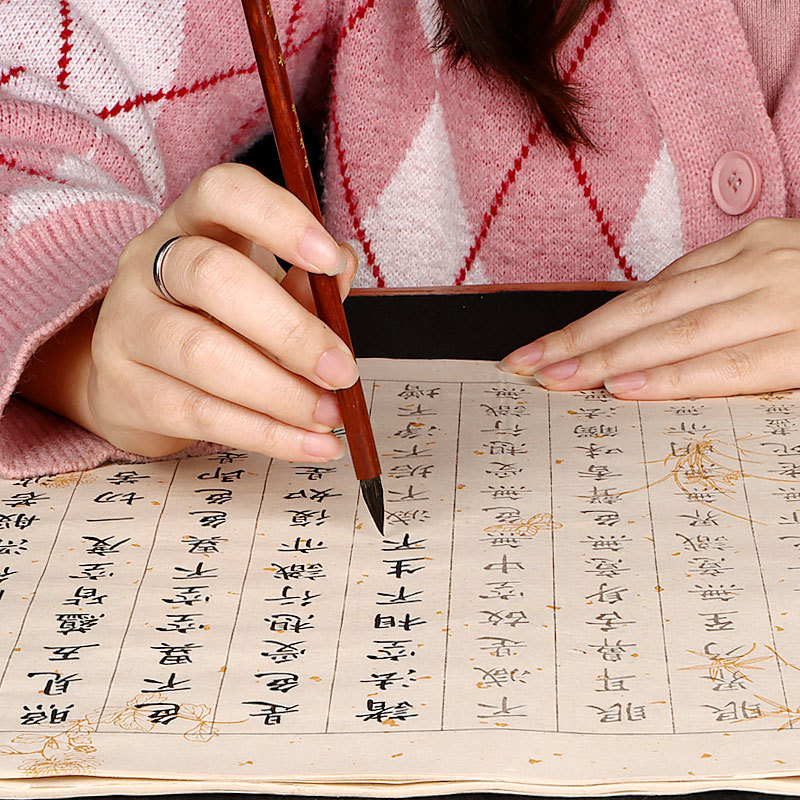 行深般若
照見五蘊皆空度一切苦
色不異空空不異色色即是
是色受想行識亦復如是
諸法空相不生不滅不垢不淨不增
不滅是故空中無色無受想行識無
眼耳鼻舌身意無色聲香味觸法無
眼界乃至無意識界無無明亦無
老死